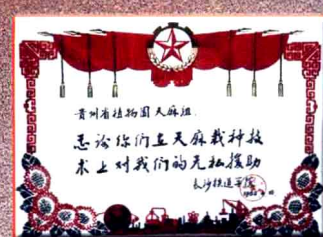 贵州省植物园天麻组:
感谢你们在天麻栽种技
术上对我们的无私援助
长沙铁道学院